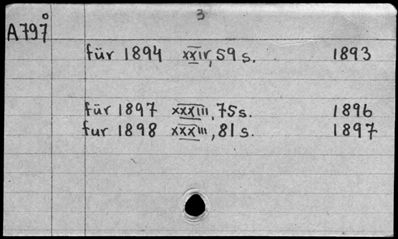 3
A797°
für 1894 XXIV, 59 s. 1893
für 1897 XXXIII, 75 s. 1896
fur 1898 XXXIII, 81 s. 1897